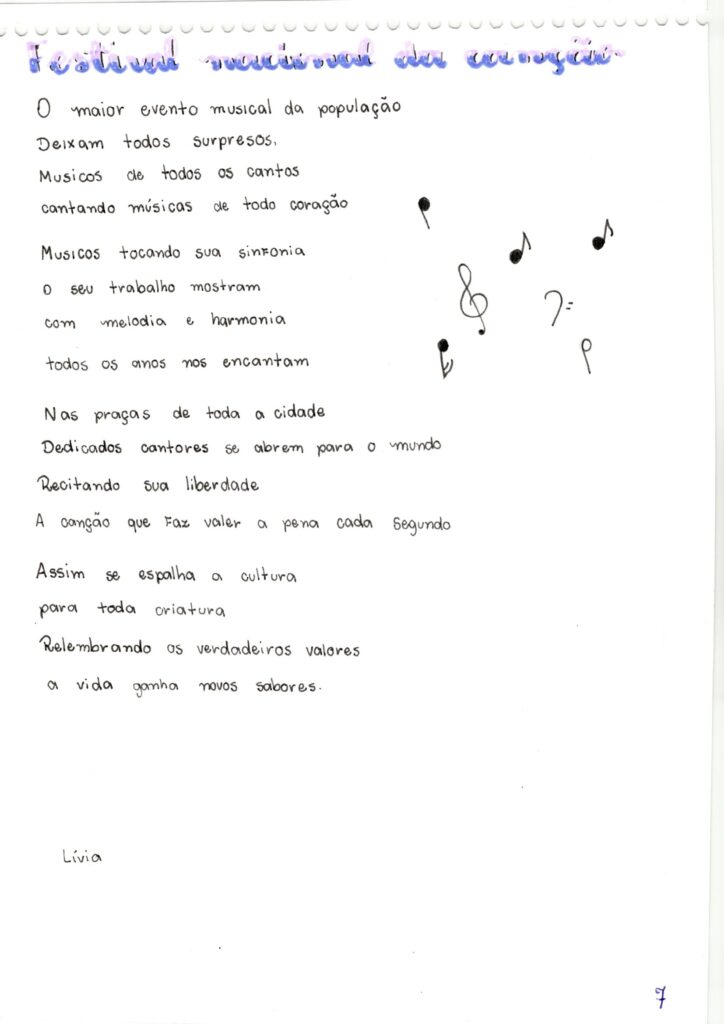 Festival nacional da canção
O maior evento musical da população
Deixam todos surpresos,
Musicos de todos os cantos
cantando músicas de todo coração
Musicos tocando sua sinfonia
o seu trabalho mostram
com melodia e harmonia
todos os anos nos encantam
Nas praças de toda a cidade
Dedicados cantores se abrem para o mundo
Recitando sua liberdade
A canção que Faz valer a pena cada Segundo
Assim se espalha a cultura
para toda criatura
Relembrando os verdadeiros valores
a vida ganha novos sabores.
Lívia
7